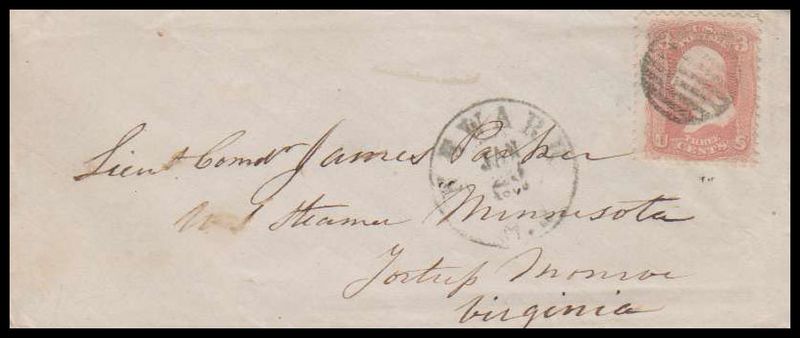 3 3
U THREE S
CENTS
NEWARK
JAN
N.J.
Lieut Comdr James Parker
U S Steamer Minnesota
Fortress Monroe
Virginia